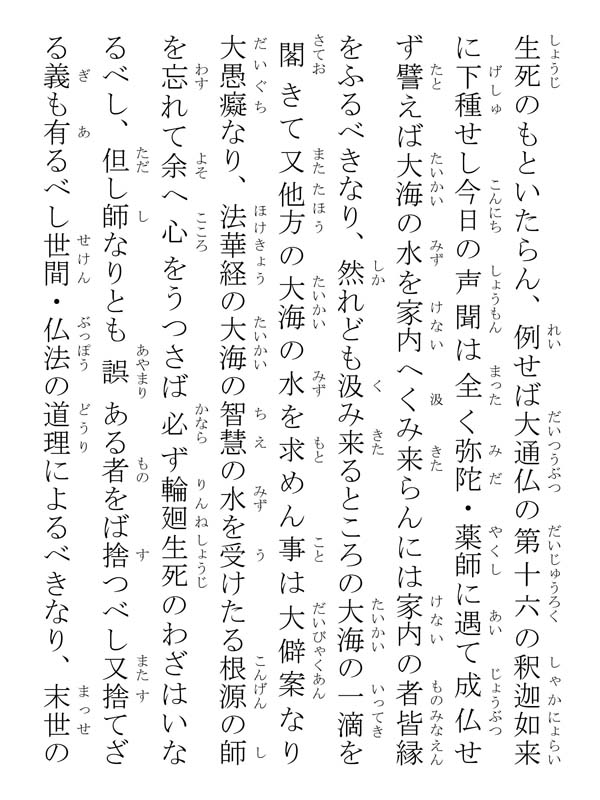 生死のもといたらん、例せば大通仏の第十六の釈迦如来
に下種せし今日の声聞は全く弥陀・薬師に遇て成仏せ
ず譬えば大海の水を家内へくみ来らんには家内の者皆縁
をふるべきなり、然れども汲み来るところの大海の一滴を
閣きて又他方の大海の水を求めん事は大僻案なり
大愚癡なり、法華経の大海の智慧の水を受けたる根源の師
を忘れて余へ心をうつさば必ず輪廻生死のわざはいな
るべし、但し師なりとも誤ある者をば捨つべし又捨てざ
る義も有るべし世間・仏法の道理によるべきなり、末世の